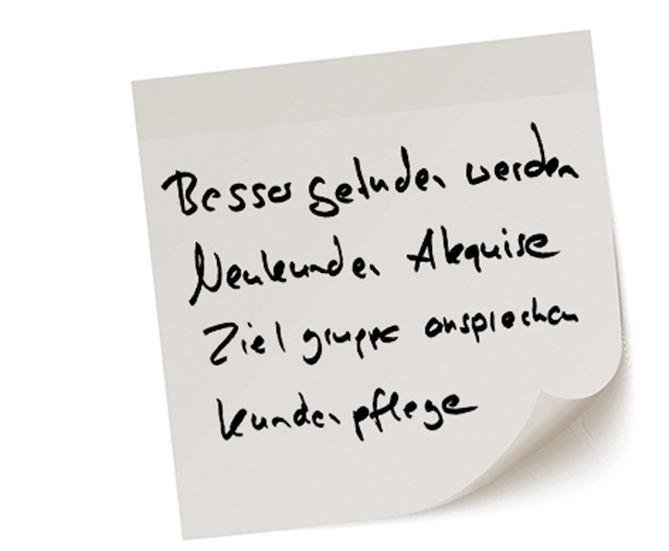 Besser gefunden werden
Neukunden Akquise
Zielgruppe ansprechen
Kundenpflege